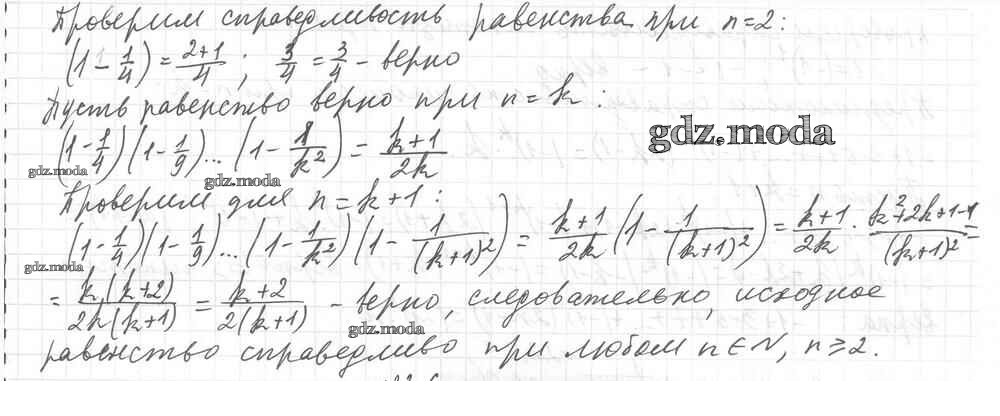 Проверим справедливость равенства при n=2:
(1 - 1/4) = (2+1)/4 ; 3/4 = 3/4 - верно
Пусть равенство верно при n = k :
gdz.moda
(1 - 1/4)(1 - 1/9)...(1 - 1/k²) = (k+1)/2k
gdz.moda
gdz.moda
Проверим для n = k+1 :
(1 - 1/4)(1 - 1/9)...(1 - 1/k²)(1 - 1/(k+1)²) = (k+1)/2k (1 - 1/(k+1)²) = (k+1)/2k · (k²+2k+1-1)/(k+1)² =
gdz.moda
= k(k+2)/2k(k+1) = (k+2)/2(k+1) - верно, следовательно, исходное
gdz.moda
равенство справедливо при любом n∈N, n≥2.